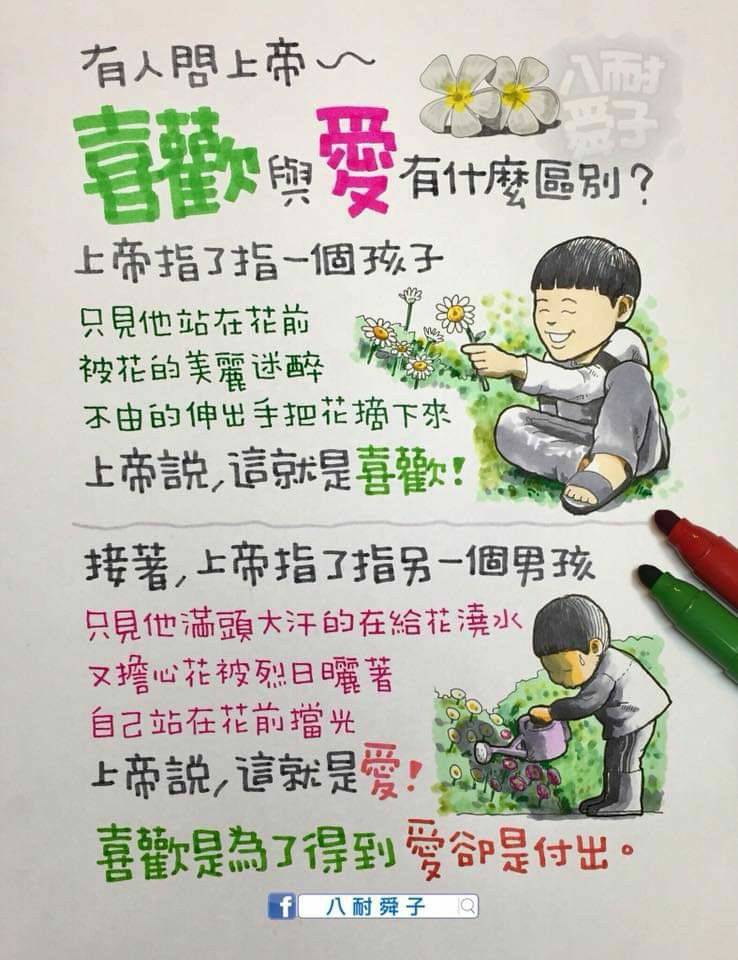 有人問上帝～
八耐
舜子
喜歡與愛有什麼區別？
上帝指了指一個孩子
只見他站在花前
被花的美麗迷醉
不由的伸出手把花摘下來
上帝說，這就是喜歡！
接著，上帝指了指另一個男孩
只見他滿頭大汗的在給花澆水
又擔心花被烈日曬著
自己站在花前擋光
上帝說，這就是愛！
喜歡是為了得到 愛卻是付出。
f 八耐舜子